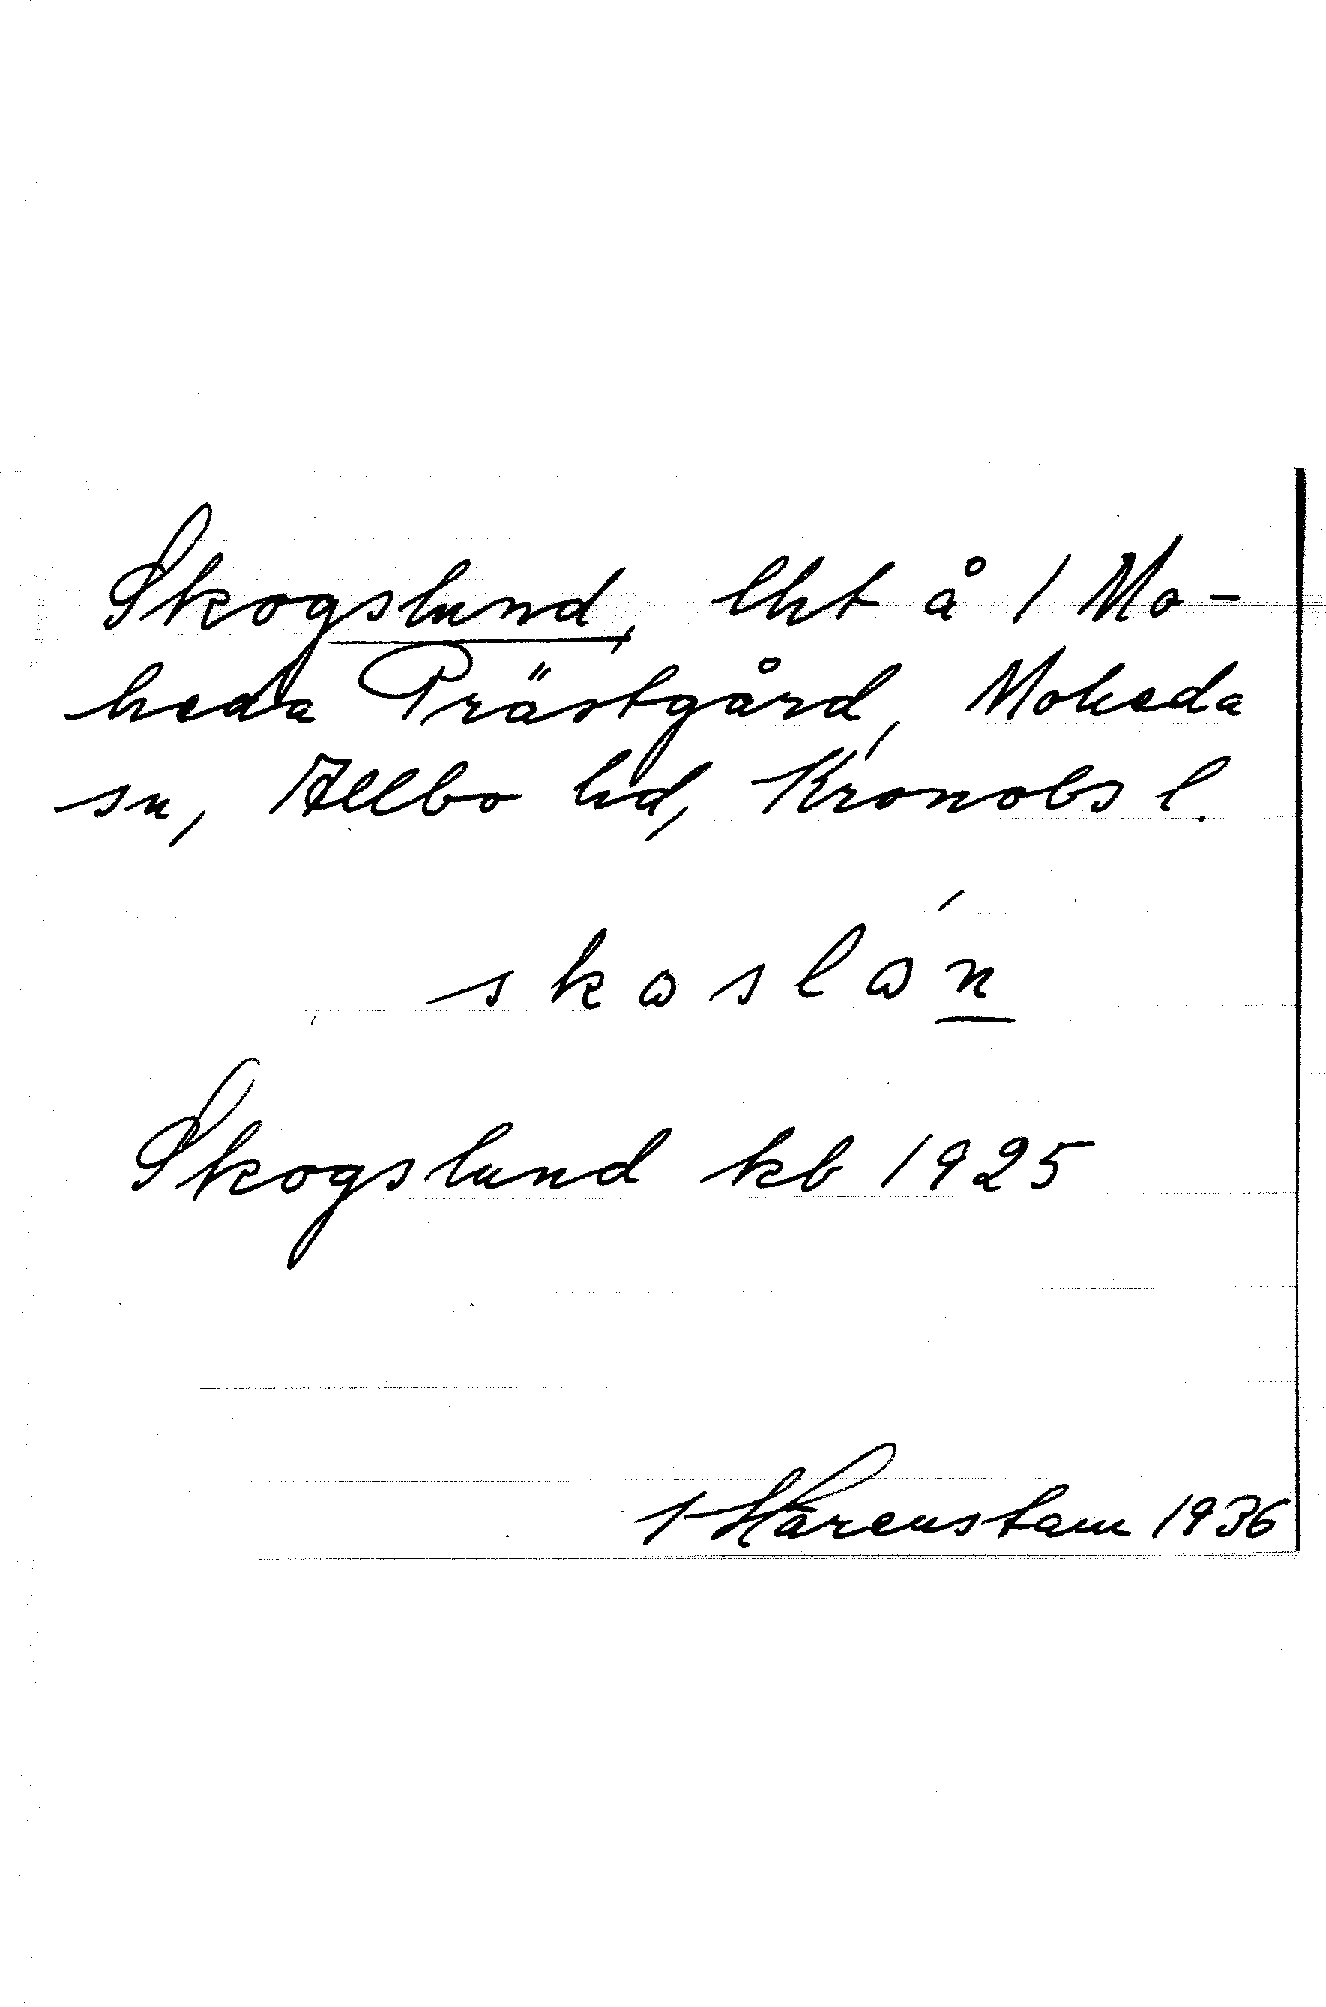 Skogslund, lht å 1 Mo-
heda Prästgård, Moheda
sn, Allbo hd, Kronobs l.
skɷslɷ́n
Skogslund kb 1925
Härenstam 1936